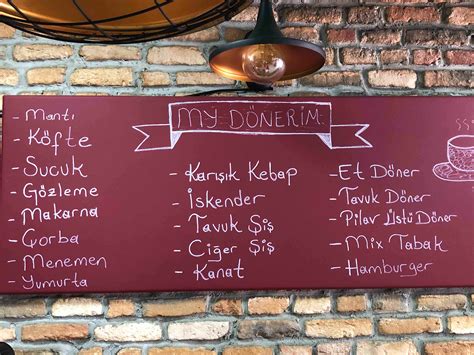 MY DÖNERİM
- Mantı
- Köfte
- Sucuk
- Gözleme
- Makarna
- Çorba
- Menemen
- Yumurta
- Karışık Kebap
- İskender
- Tavuk Şiş
- Ciğer Şiş
- Kanat
- Et Döner
- Tavuk Döner
- Pilav Üstü Döner
- Mix Tabak
- Hamburger